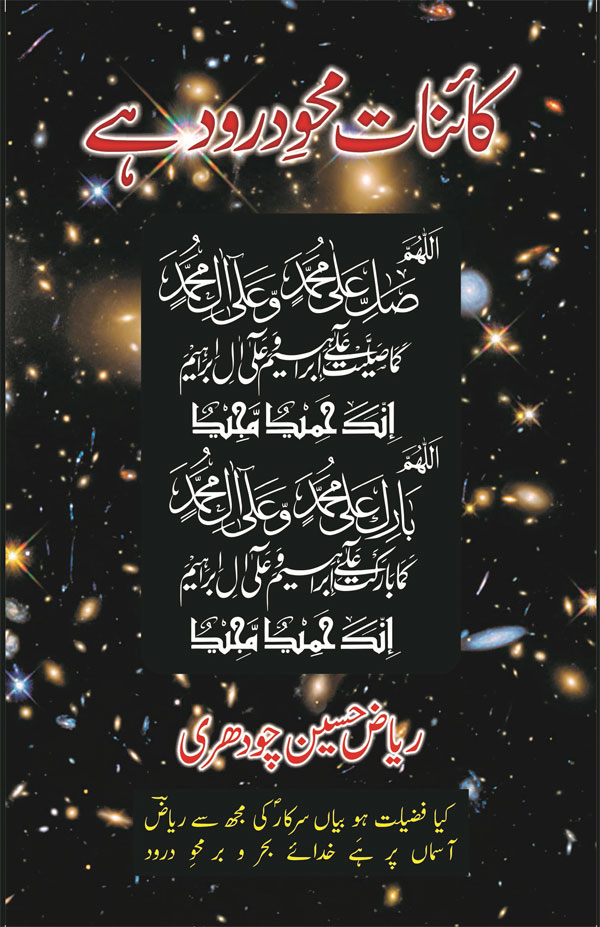 کائنات محوِ درود ہے
اَللّٰهُمَّ
صَلِّ عَلٰى مُحَمَّدٍ وَّعَلٰٓى اٰلِ مُحَمَّدٍ
كَمَا صَلَّيْتَ عَلٰٓى اِبْرَاهِيْمَ وَعَلٰٓى اٰلِ اِبْرَاهِيْمَ
اِنَّكَ حَمِيْدٌ مَّجِيْدٌ
اَللّٰهُمَّ
بَارِكْ عَلٰى مُحَمَّدٍ وَّعَلٰٓى اٰلِ مُحَمَّدٍ
كَمَا بَارَكْتَ عَلٰٓى اِبْرَاهِيْمَ وَعَلٰٓى اٰلِ اِبْرَاهِيْمَ
اِنَّكَ حَمِيْدٌ مَّجِيْدٌ
ریاض حسین چودھری
کیا فضیلت ہو بیاں سرکارؐ کی مجھ سے ریاضؔ
آسماں پر ہَے خدائے بحر و بر محوِ درود